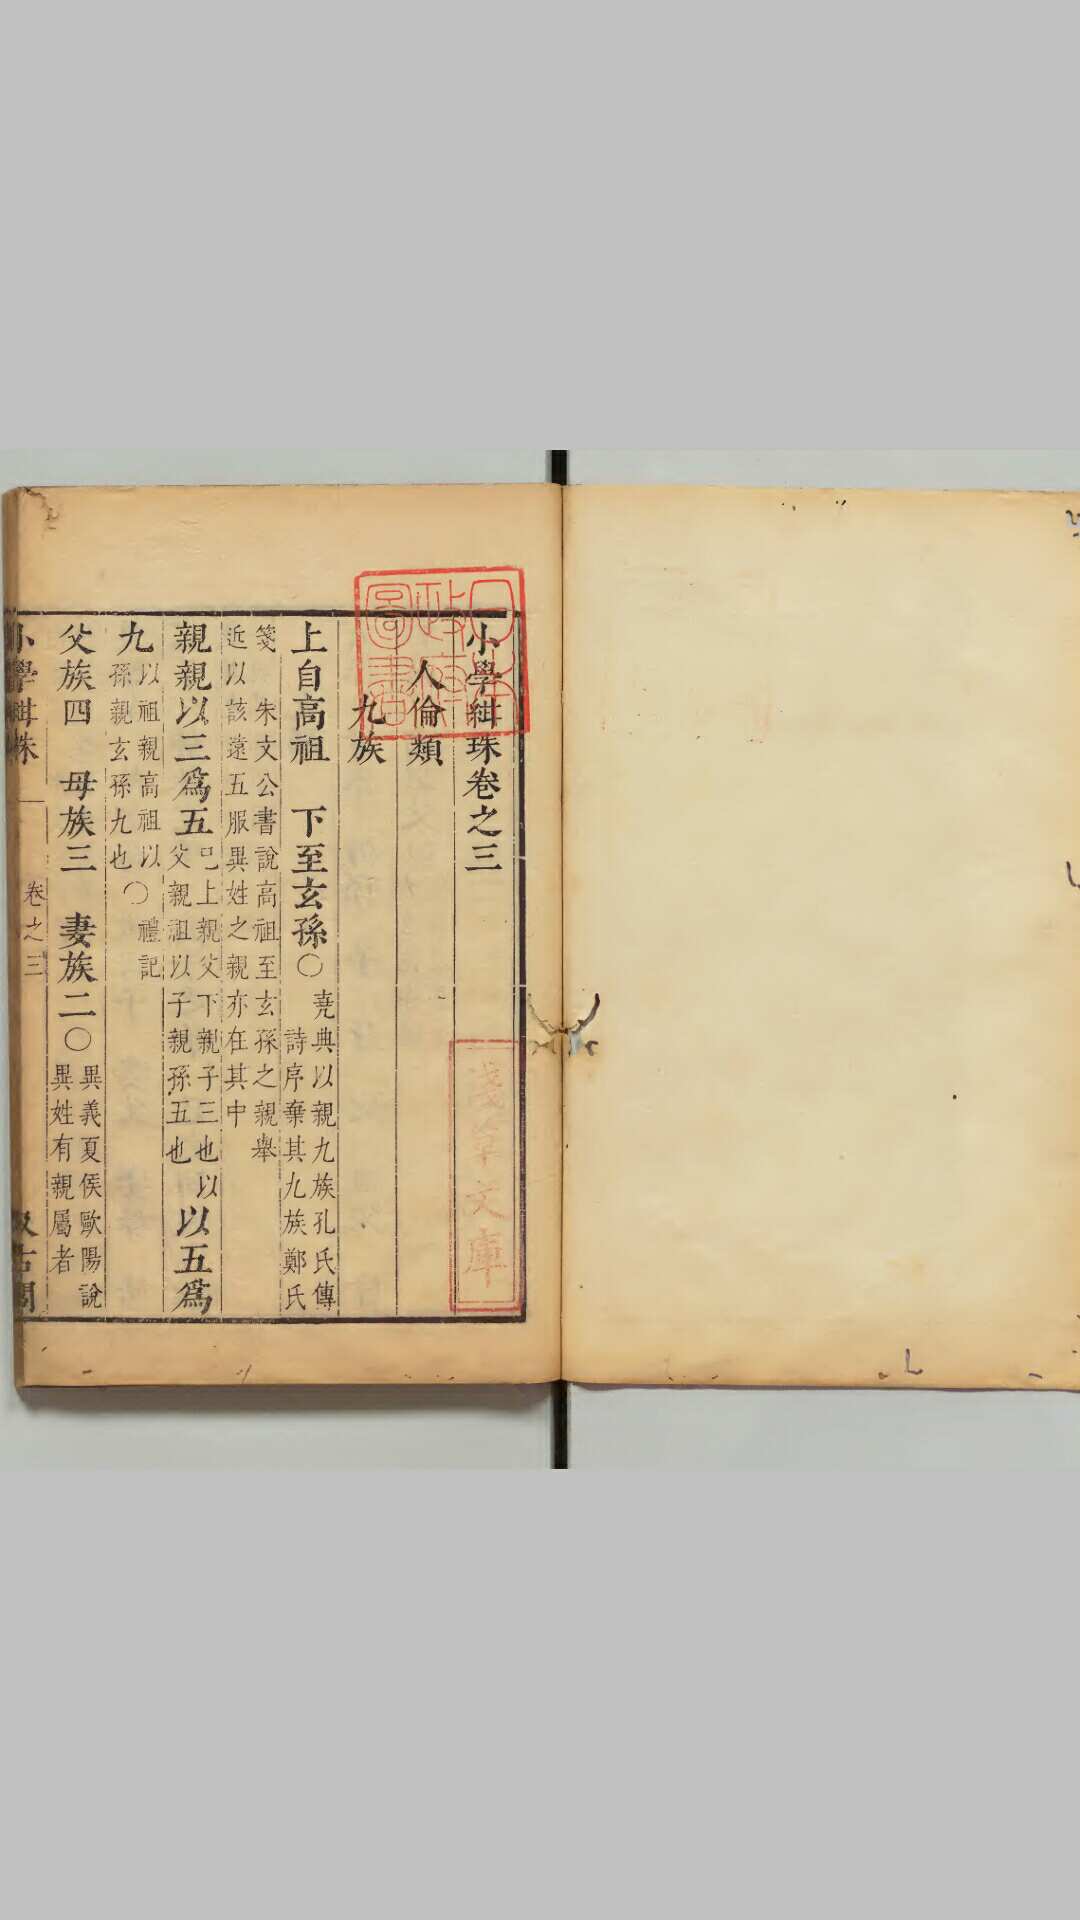 小學紺珠卷之三
人倫類
九族
上自高祖　下至玄孫○堯典以親九族孔氏傳
詩序棄其九族鄭氏
箋　朱文公書說高祖至玄孫之親舉
近以該遠五服異姓之親亦在其中
親親以三爲五巳上親父下親子三也以
父親祖以子親孫五也以五爲
九以祖親高祖以
孫親玄孫九也○禮記
父族四　母族三　妻族二○異義夏侯歐陽說
異姓有親屬者
小學紺珠　卷之三　汲古閣
日本政府圖書
淺草文庫